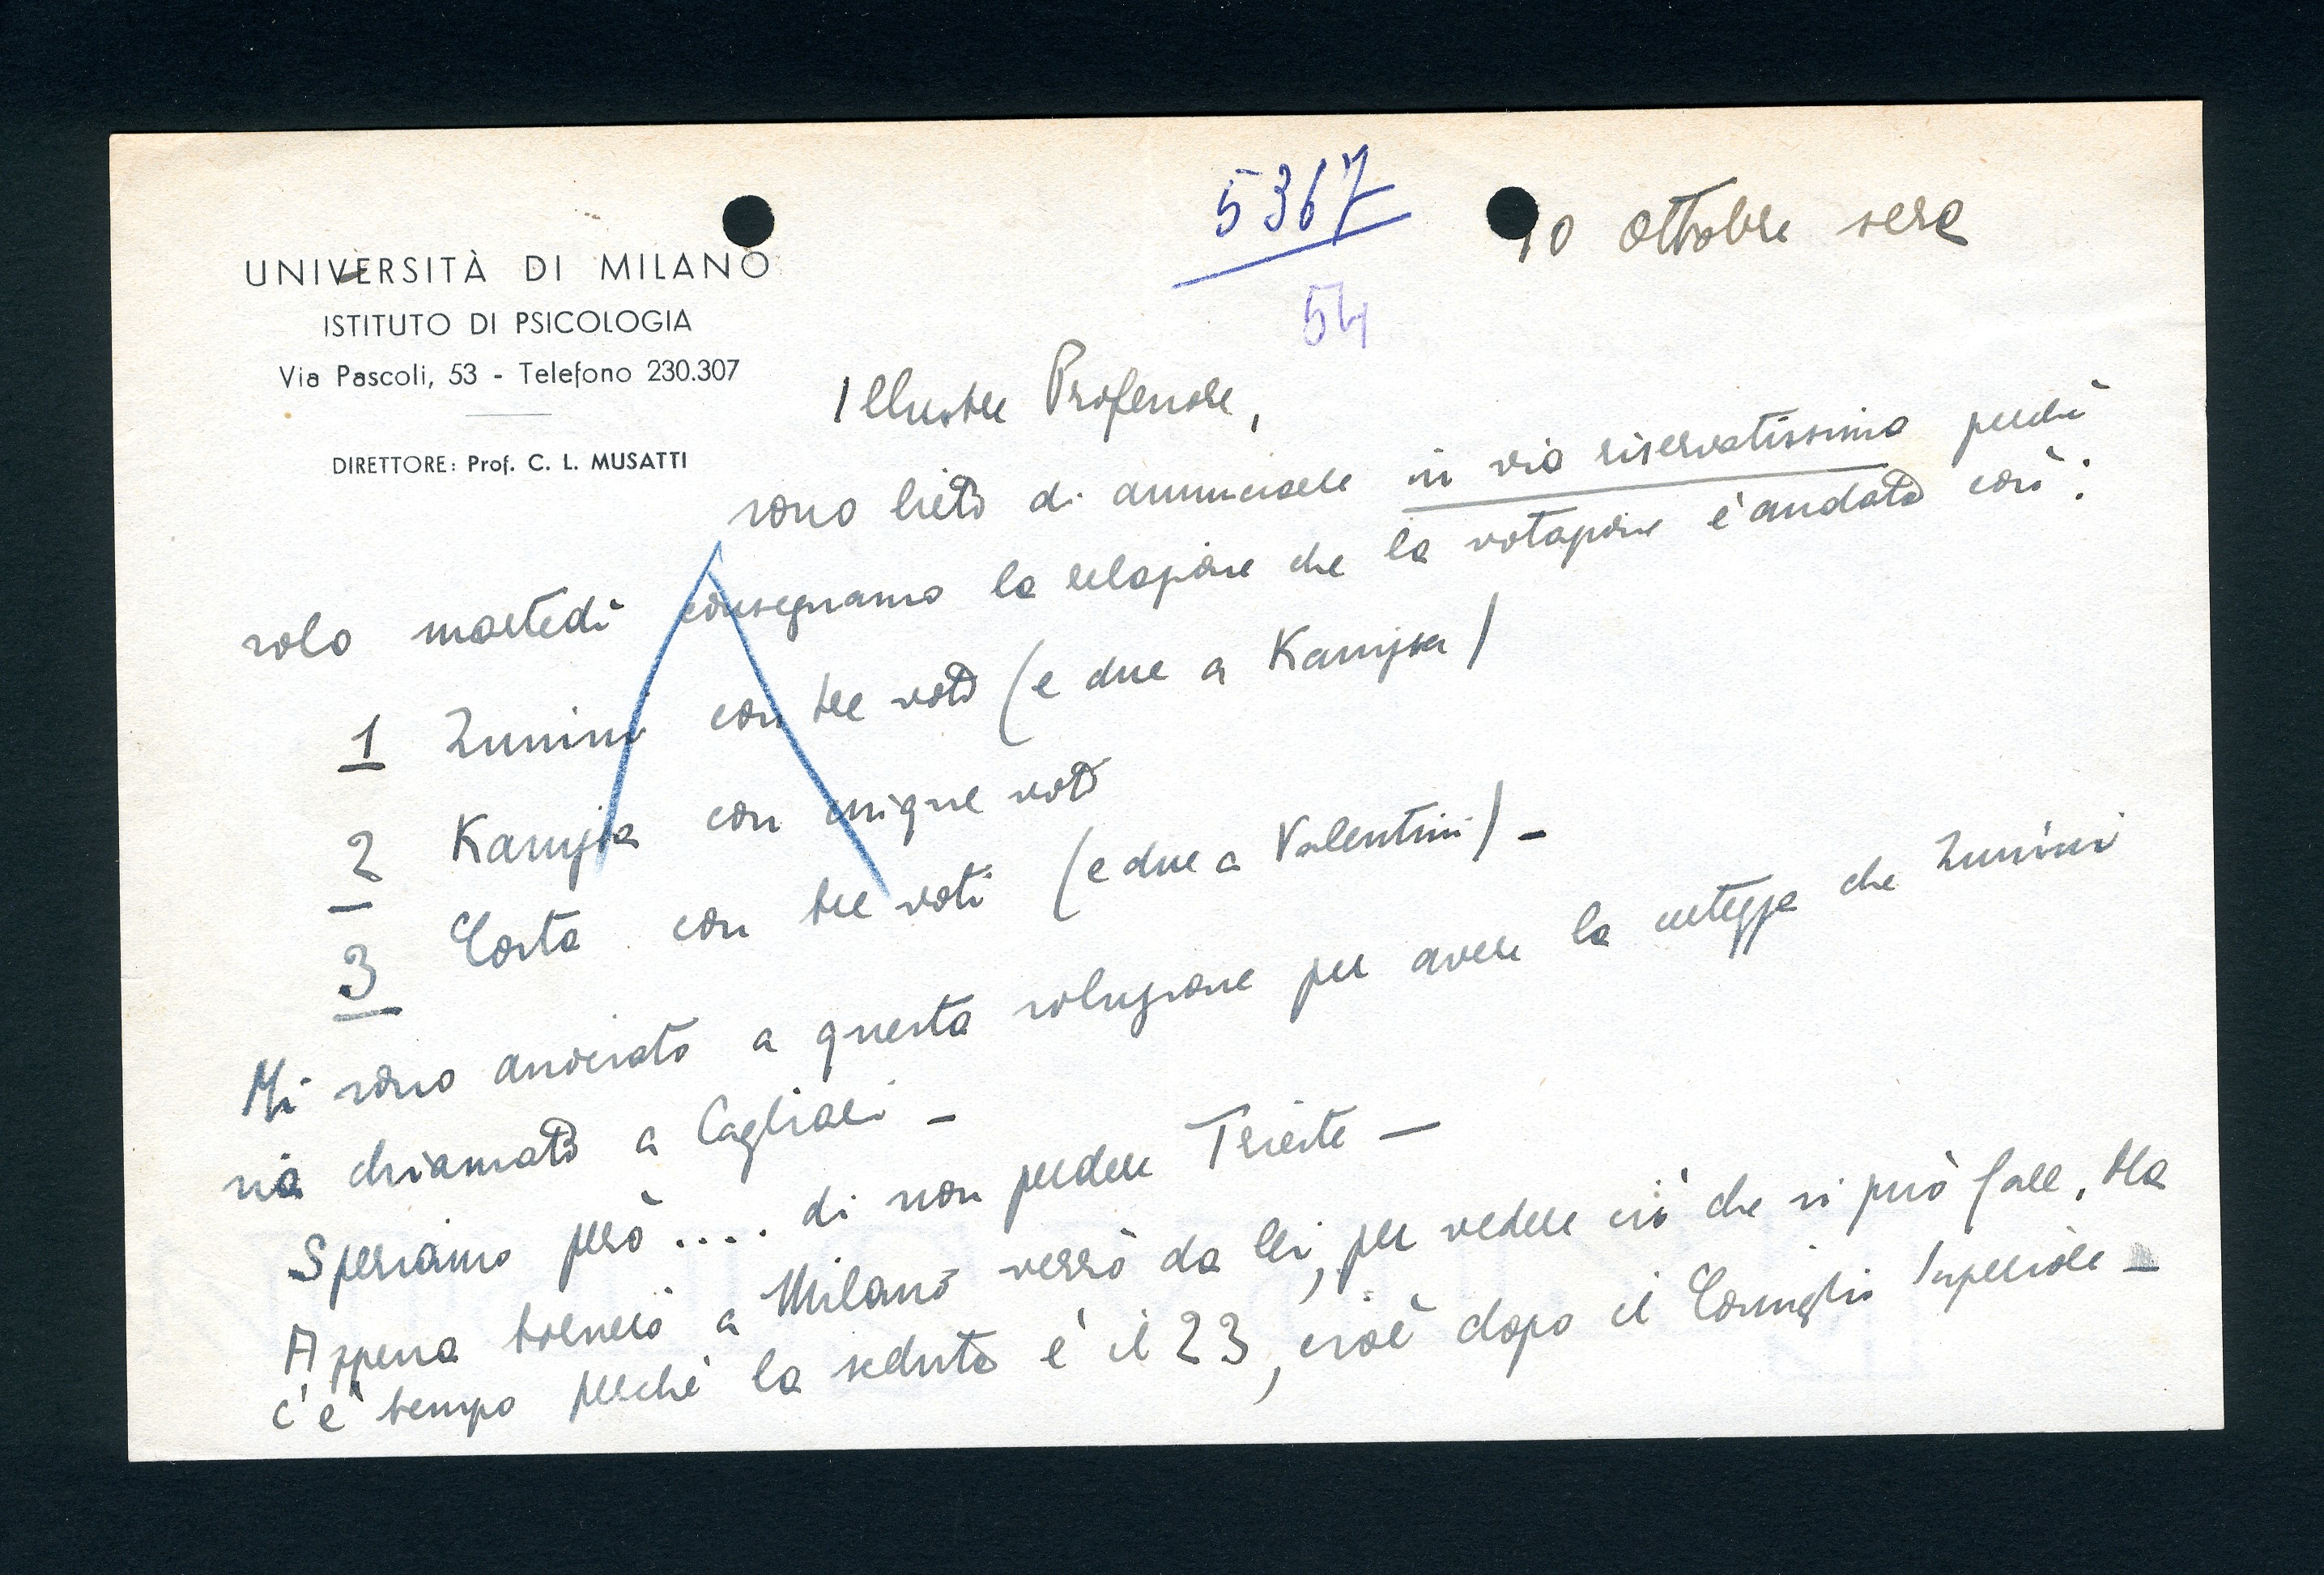 5367
54
10 ottobre sera
UNIVERSITÀ DI MILANO
ISTITUTO DI PSICOLOGIA
Via Pascoli, 53 - Telefono 230.307
DIRETTORE: Prof. C. L. MUSATTI
Illustre Professore,
sono lieto di annunciarle in via riservatissima perchè
solo martedì consegnamo la relazione che la votazione è andata così:
1 Zunini con tre voti (e due a Kanizsa)
2 Kanizsa con cinque voti
3 Costa con tre voti (e due a Valentini) -
Mi sono associato a questa soluzione per avere la certezza che Zunini
sia chiamato a Cagliari -
Speriamo però .... di non perdere Trieste -
Appena tornerò a Milano verrò da lei, per vedere ciò che si può fare. Ma
c'è tempo perchè la seduta è il 23, cioè dopo il Consiglio Superiore -